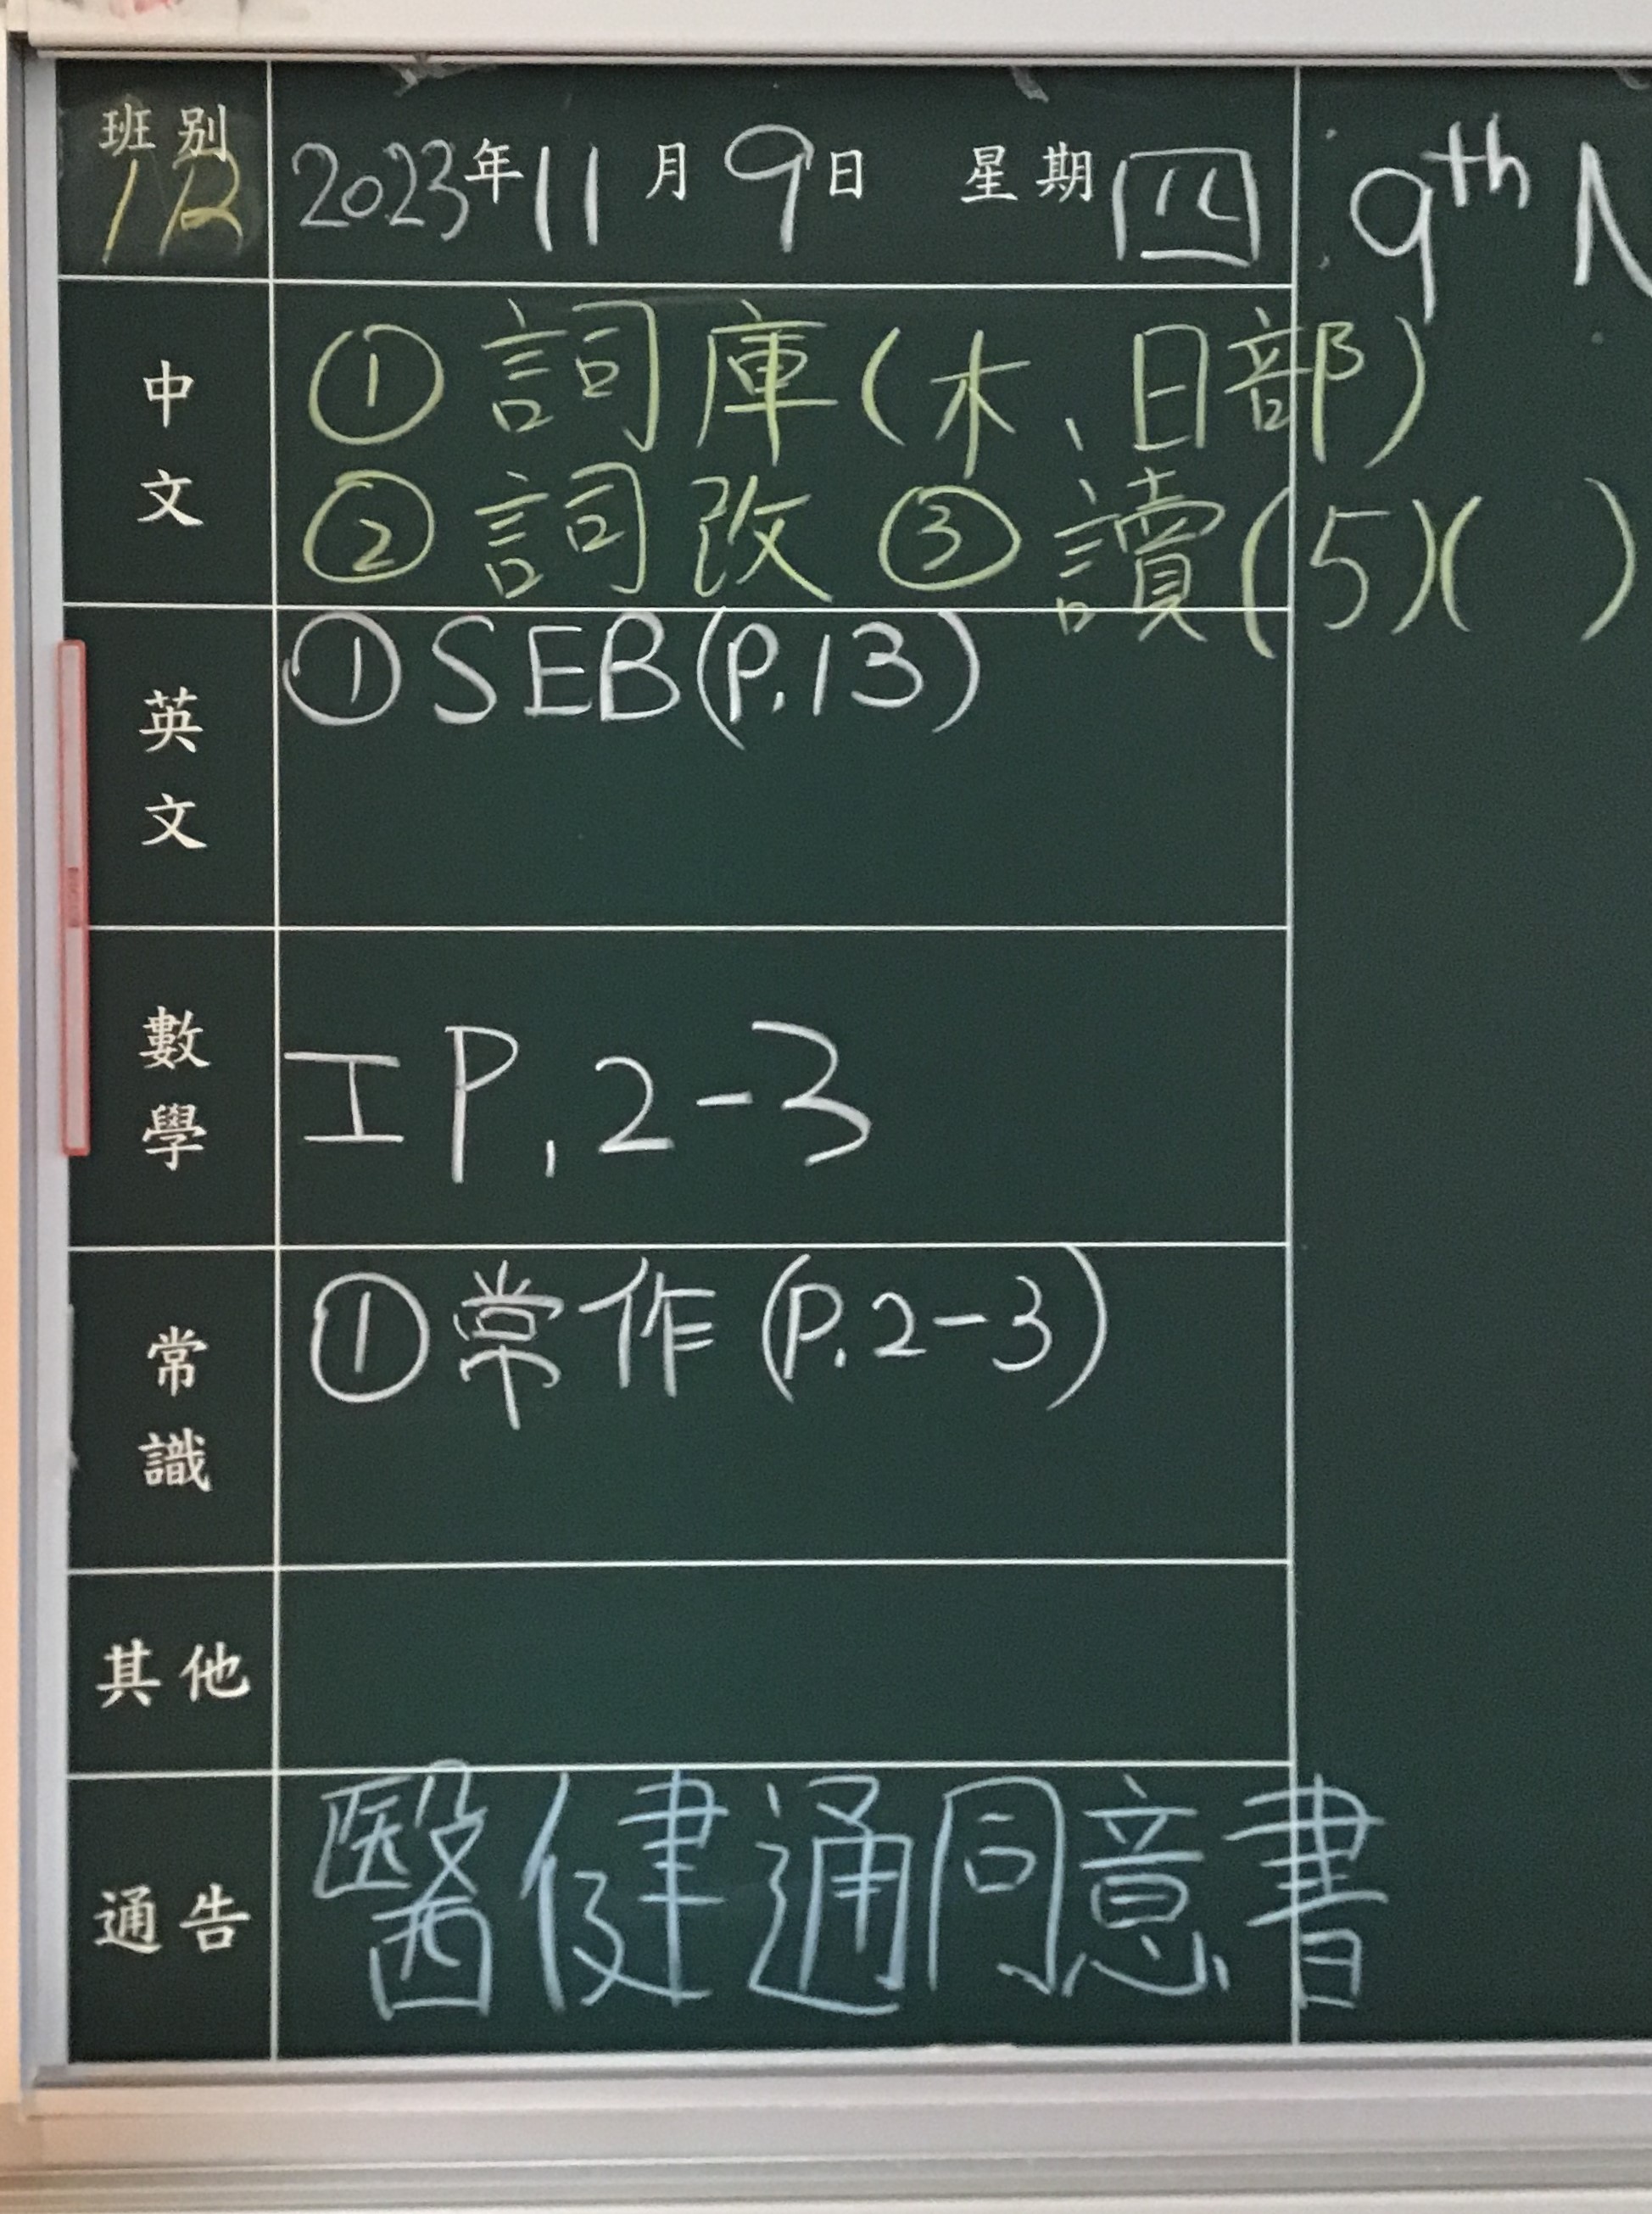 班別
2023年11月9日 星期四
9th N
中文
①詞庫(木、日部)
②詞改 ③讀(5)( )
英文
①SEB(P.13)
數學
工P.2-3
常識
①常作(P.2-3)
其他
通告
醫健通同意書